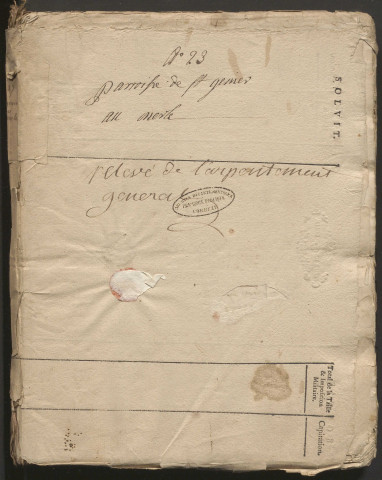 N° 23
parroisse de st geniès
au merle
relevé de l'arpentement
general
SOLVIT.
Total de la Taille
& Imposition
Militaire.
Capitation.